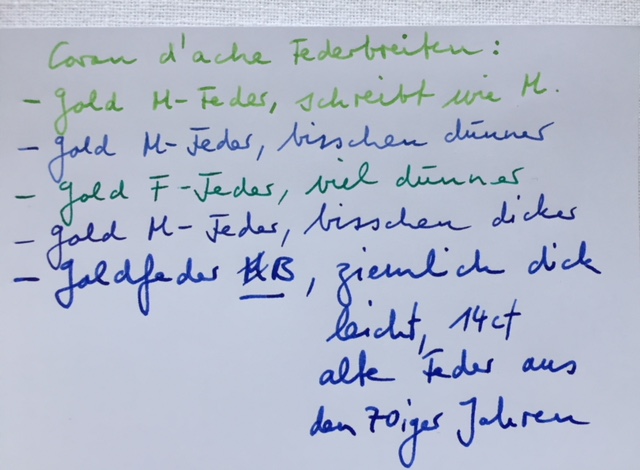 Caran d'ache Federbreiten:
- Gold M-Feder, schreibt wie M.
- Gold M-Feder, bisschen dünner
- Gold F-Feder, viel dünner
- Gold M-Feder, bisschen dicker
- Goldfeder B, ziemlich dick
leicht, 14ct
alte Feder aus
den 70iger Jahren